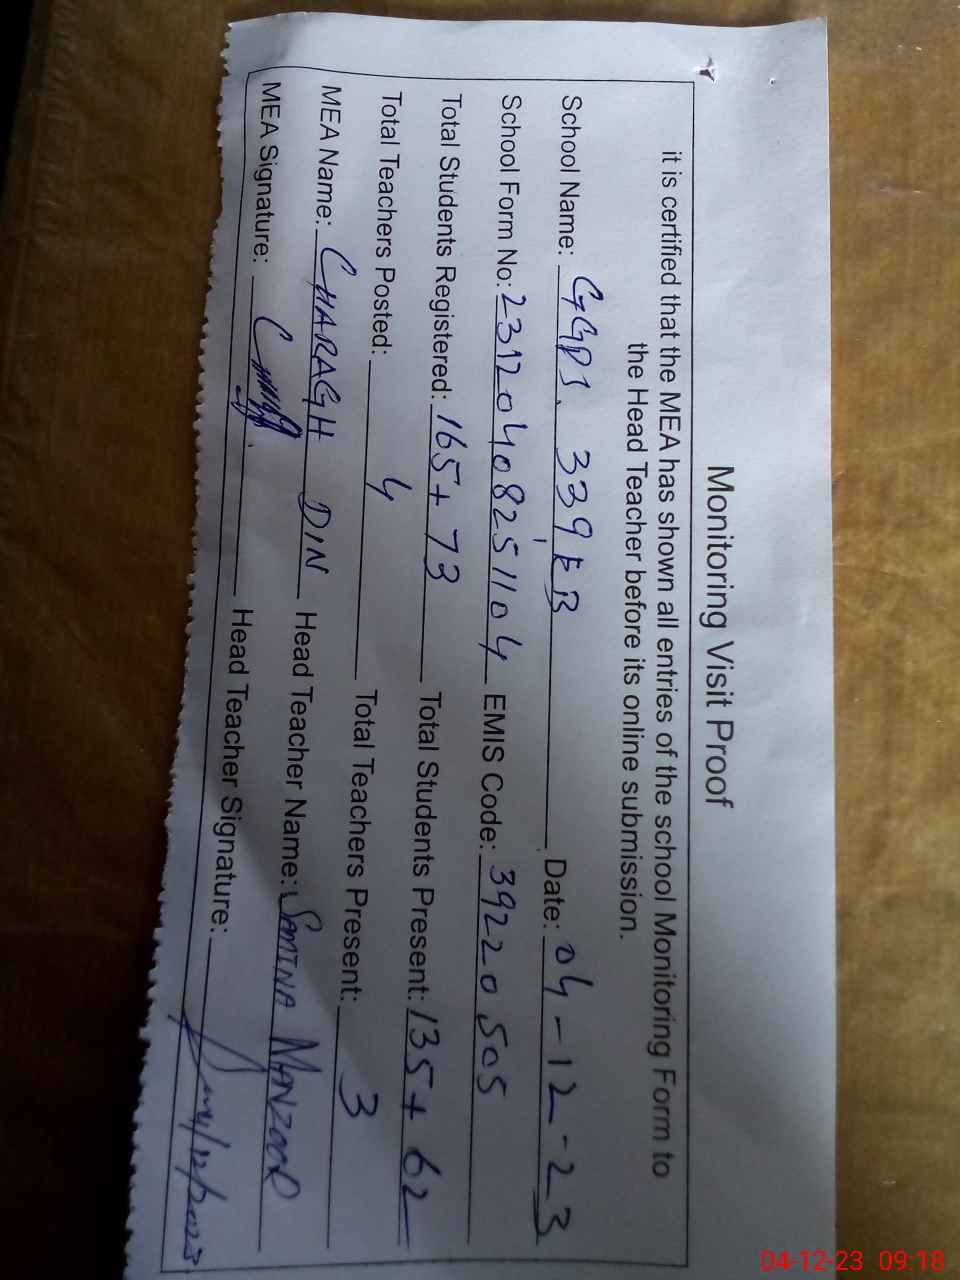 Monitoring Visit Proof
it is certified that the MEA has shown all entries of the school Monitoring Form to
the Head Teacher before its online submission.
School Name: GGPS. 339 EB Date: 04-12-23
School Form No: 23120408251104 EMIS Code: 39220505
Total Students Registered: 165+73 Total Students Present: 135+62
Total Teachers Posted: 4 Total Teachers Present: 3
MEA Name: CHARAGH DIN Head Teacher Name: SAMINA MANZOOR
MEA Signature: Head Teacher Signature:
04-12-23 09:18